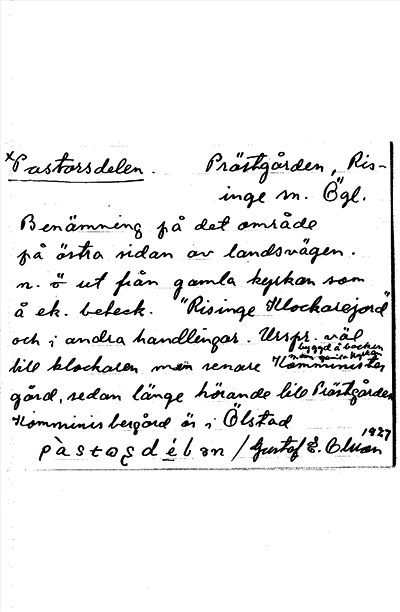 x Pastorsdelen. Prästgården, Ris-
inge sn. Ögl.
Benämning på det område
på östra sidan av landsvägen.
n. ö ut från gamla kyrkan som
å ek. beteck. "Risinge Klockarejord"
och i andra handlingar. Urspr. väl
byggd å backen
till klockaren men senare Komminister
gård, sedan länge hörande till Prästgården
Komministergård är i Ölstad
1927
/ Gustaf E.